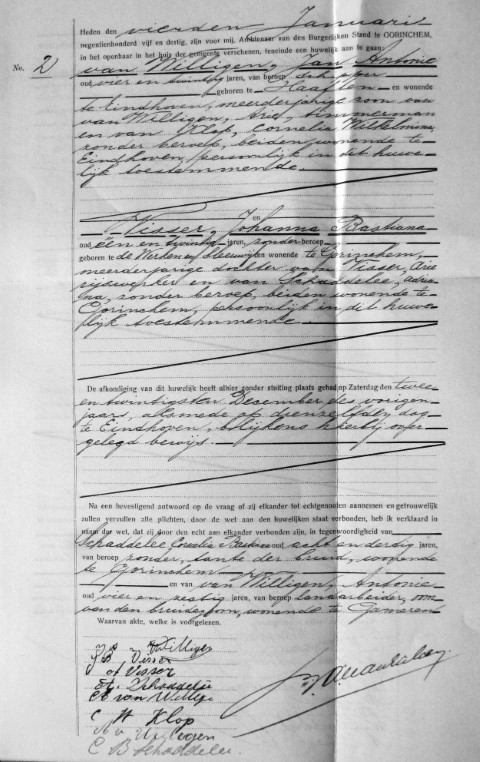 Heden den vierden Januari
negentienhonderd vijf en dertig, zijn voor mij, Ambtenaar van den Burgerlijken Stand te GORINCHEM,
in het openbaar in het huis der gemeente verschenen, teneinde een huwelijk aan te gaan:
No. 2
van Willigen, Jan Antonie
oud vier en twintig jaren, van beroep schipper
geboren te Haaften en wonende
te Eindhoven, meerderjarige zoon van
van Willigen, Arie, timmerman
en van Klop, Cornelia Wilhelmina,
zonder beroep, beiden wonende te
Eindhoven, persoonlijk in dit huwe-
lijk toestemmende.
en
Visser, Johanna Bastiana
oud een en twintig jaren, zonder beroep
geboren te de Werken en Sleeuwijk en wonende te Gorinchem,
meerderjarige dochter van Visser, Arie
rijswerker en van Schaddelee, Adria-
na, zonder beroep, beiden wonende te
Gorinchem, persoonlijk in dit huwe-
lijk toestemmende
De afkondiging van dit huwelijk heeft alhier zonder stuiting plaats gehad op Zaterdag den twee
en twintigsten December des vorigen
jaars, alsmede op dienzelfden dag
te Eindhoven, blijkens hierbij over-
gelegd bewijs.
Na een bevestigend antwoord op de vraag of zij elkander tot echtgenooten aannemen en getrouwelijk
zullen vervullen alle plichten, door de wet aan den huwelijken staat verbonden, heb ik verklaard in
naam der wet, dat zij door den echt aan elkander verbonden zijn, in tegenwoordigheid van
Schaddelee, Cornelia oud acht en dertig jaren,
van beroep zonder, tante der bruid, wonende
te Gorinchem
en van van Willigen, Antonie
oud vier en zestig jaren, van beroep landarbeider, oom
van den bruidegom, wonende te Gameren
Waarvan akte, welke is voorgelezen.
J B Visser
A Visser
A. Schaddelee
C W Klop
C B Schaddelee.